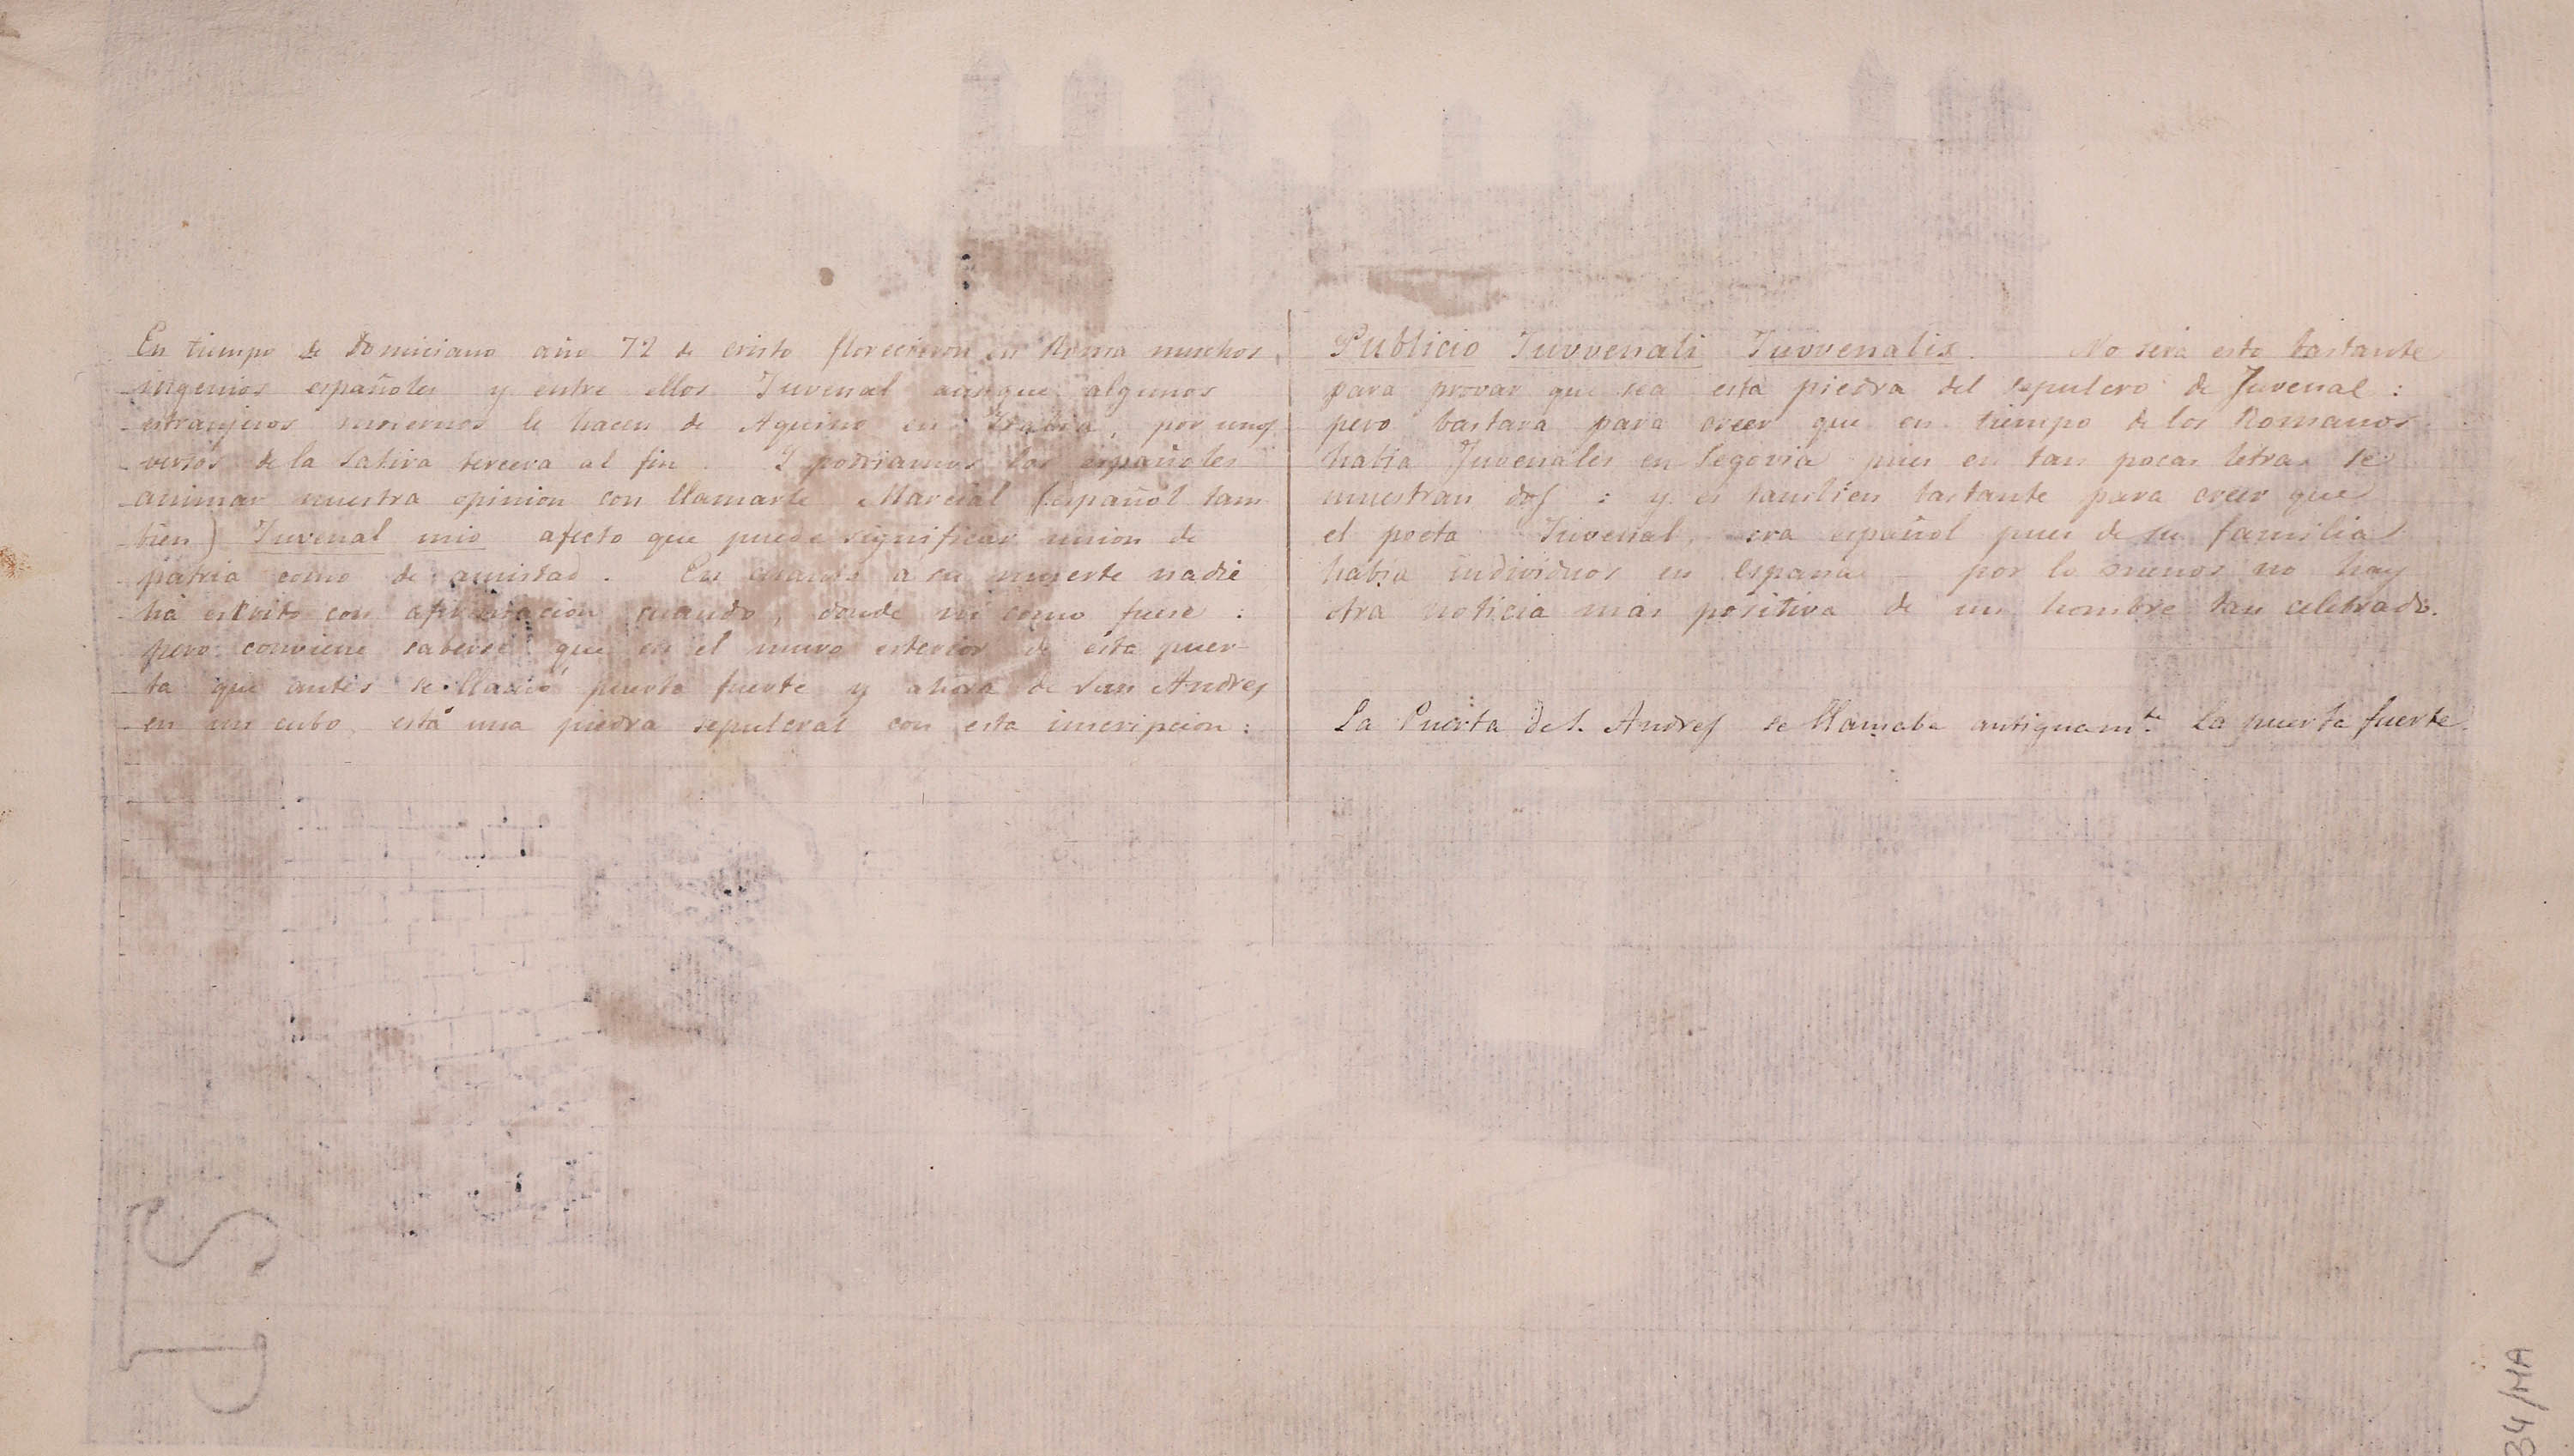 En tiempo de Domiciano año 72 de cristo florecieron en Roma muchos
ingenios españoles y entre ellos Juvenal aunque algunos
estranjeros modernos le hacen de Aquino en Italia, por unos
versos de la Satira tercera al fin. I podriamos los españoles
animar nuestra opinion con llamarle Marcial (español tam
bien) Juvenal mio afecto que puede significar union de
patria como de amistad. En cuanto a su muerte nadie
ha escrito con afirmacion cuando, donde ni como fuese:
pero conviene saberse que en el muro esterior de esta puer-
ta que antes se llamó puerta fuerte y ahora de San Andres
en un cubo, está una piedra sepulcral con esta inscripcion:
Publicio Iuvvenali Iuvvenalis. No será esto bastante
para provar que sea esta piedra del sepulcro de Juvenal:
pero bastara para creer que en tiempo de los Romanos
habia Juvenales en Segovia pues en tan pocas letras se
muestran dos: y es tambien bastante para creer que
el poeta Juvenal era español pues de su familia
habia individuos en españa - por lo menos no hay
otra noticia mas positiva de un hombre tan celebrado.
La Puerta de S. Andres se llamaba antiguam.te La puerta fuerte.
SP
34/MA